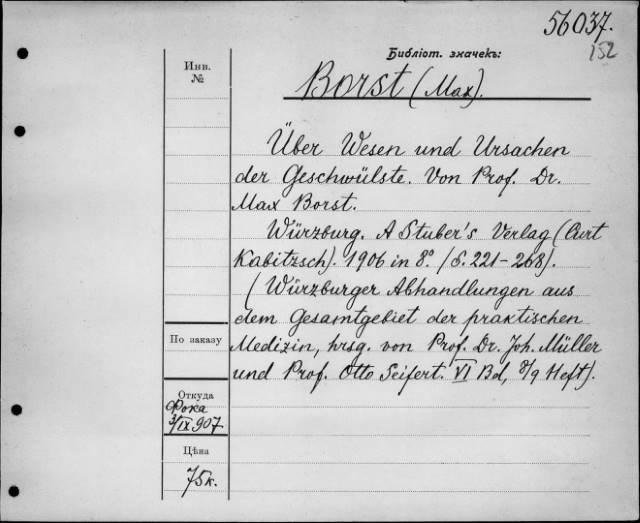 56037.
152
Библіот. значекъ:
Инв.
№
Borst (Max).
Über Wesen und Ursachen
der Geschwülste. Von Prof. Dr.
Max Borst.
Würzburg. A Stuber's Verlag (Curt
Kabitzsch). 1906 in 8º. (S. 221-268).
(Würzburger Abhandlungen aus
dem Gesamtgebiet der praktischen
Medizin, hrsg. von Prof. Dr. Joh. Müller
und Prof. Otto Seifert. VI Bd, 8/9 Heft).
По заказу
Откуда
Фока
3/IX 907
Цѣна
75к.